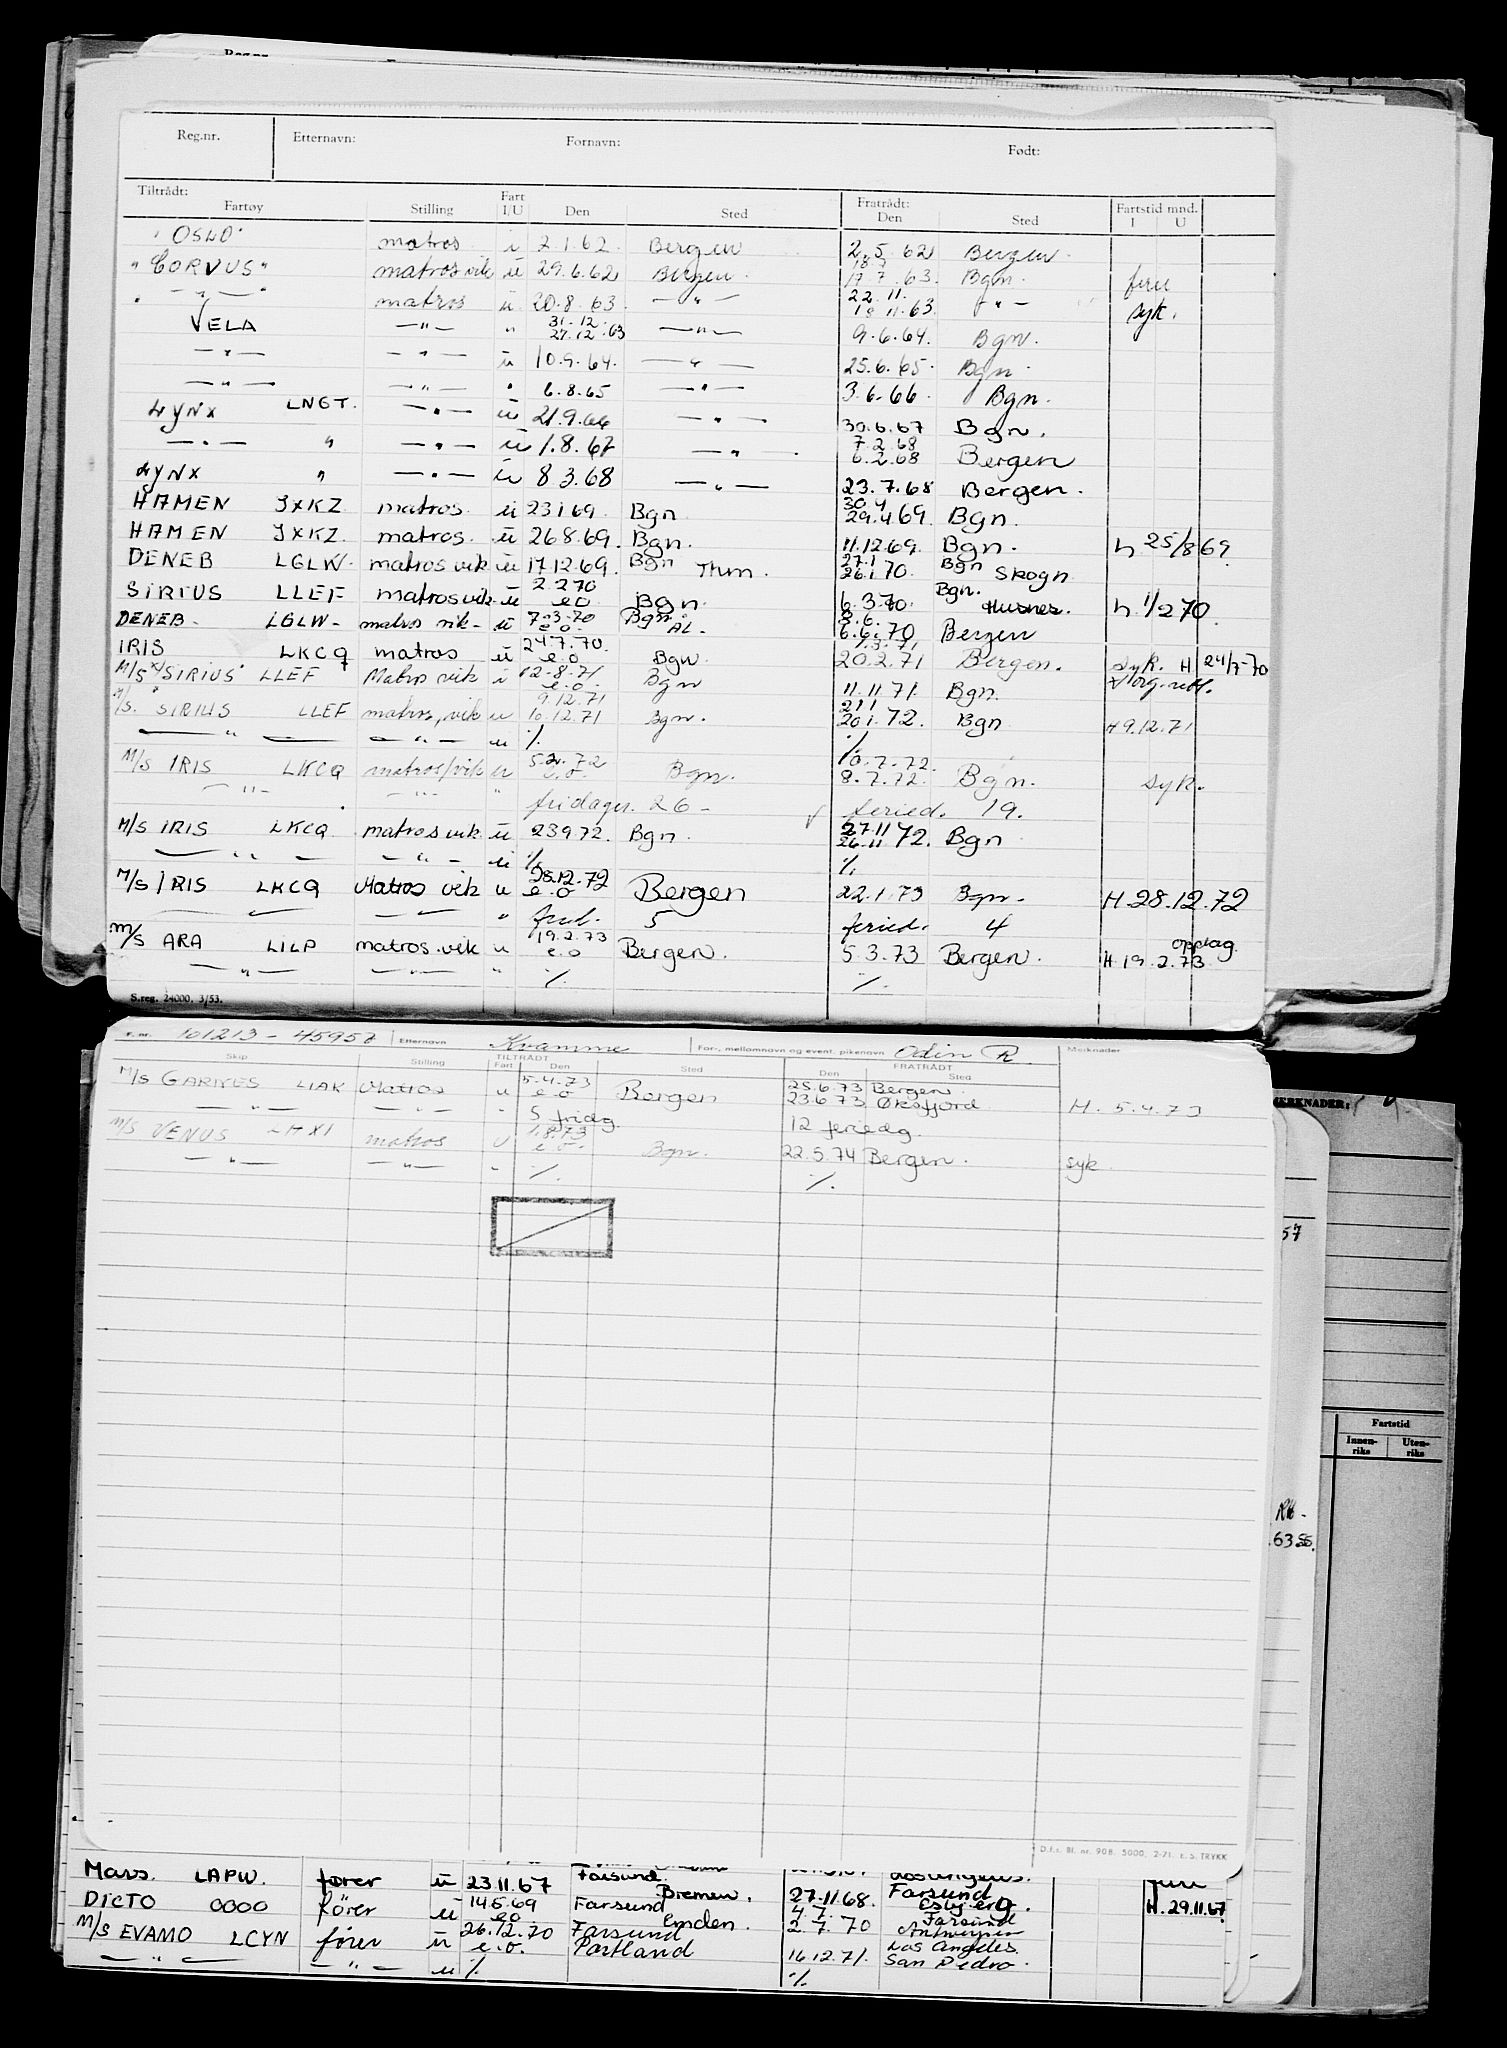 Reg.nr. Etternavn: Fornavn: Født:
Tiltrådt: Fartøy Stilling Fart I/U Den Sted Fratrådt: Den Sted Fartstid mnd. I U
"OSLO" matros i 2.1.62. Bergen 2.5.62 Bergen.
"CORVUS" matros vik ü 29.6.62 Bergen. 18.7 17.7.63. Bgn. ferie
" — " — " matros ü 20.8.63. — " — 22.11. 19.11.63. " — syk.
VELA — " — " 31.12 27.12.63 — " — 9.6.64. Bgn.
— " — — " — ü 10.9.64. — " — 25.6.65. Bgn.
— " — — " — " 6.8.65 — " — 3.6.66. Bgn.
LYNX LNGT. — " — ü 21.9.66 — " — 30.6.67 Bgn.
— " — " — " — ü 1.8.67 — " — 7.2.68 6.2.68 Bergen
LYNX " — " — ü 8 3.68 — " — 23.7.68 Bergen.
HAMEN JXKZ matros. ü 23 1 69. Bgn 30.4 29.4.69. Bgn.
HAMEN JXKZ. matros. ü 26 8.69. Bgn. 11.12.69. Bgn. h 25/8 69.
DENEB LGLW. matros vik ü 17.12.69. Bgn Thm. 27.1 26.1.70. Bgn Skogn
SIRIUS LLEF matros vik ü 2.2.70 e.o Bgn. 6.3.70. Bgn. Husnes. h. 1/2 70.
DENEB - LGLW - matros vik - ü 7.3.70 e.o Bgn. ÅL. 8.6. 6.6.70 Bergen
IRIS LKCQ matros ü 24.7.70. e.o Bgn. 1.3.71 20.2.71 Bergen. syk. H 24/7-70
M/S "SIRIUS" LLEF Matros vik i 12.8.71 e.o. Bgn 11.11 71. Bgn.
M/S. "SIRIUS LLEF matros, vik u 9.12.71 10.12.71 Bgn. 21.1 20.1.72. Bgn H 9.12.71
— " — — " — u ./. ./.
M/S IRIS LKCQ matros/vik u 5.2.72 e.o. Bgn. 10.7.72. 8.7.72. Bgn. syk.
— " — — " — " fridager. 26 - feried. 19.
M/S IRIS LKCQ matros vik ü 23 9 72. Bgn. 27.11 26.11 72. Bgn
— " — — " — ü ./. ./.
M/S IRIS LKCQ Matros vik u 28.12.72 e.o Bergen 22.1.73 Bgn. H 28.12.72
— " — — " — " frid. 5 feried. 4
M/S ARA LILP matros.vik u 19.2.73 e.o Bergen. 5.3.73 Bergen. H.19.2.73 opptag.
— " — — " — " ./. ./.
S.reg. 24000. 3/53.
101213 - 45957 Etternavn Kvamme For-, mellomnavn og event. pikenavn Odin R Merknader
Skip Stilling TILTRÅDT Fart Den Sted FRATRÅDT Den Sted
M/S GARNES LIAK Matros u 5.4.73 e.o Bergen 25.6.73 Bergen 23.6.73 Øksfjord H. 5.4.73
— " — — " — " 5 fridg. 12 feriedg.
M/S VENUS matros U 1.8.73 e.o. Bgn. 22.5.74 Bergen. syk
— " — — " — " ./. ./.
D.f.s. Bl. nr. 908. 5000, 2-71. E.S. TRYKK
MERKNADER:
57
Fartstid
Innenriks Utenriks
63
Mars. LAPW. fører ü 23.11.67 Farsund. Bremen. 27.11.68. Farsund H. 29.11.67
DICTO OOOO förer ü 14.5.69 e.o Farsund Emden. 4.7. 2.7.70 Esbjerg. Farsund
M/S EVAMO LCYN fører ü 26.12.70 e.o. Farsund Portland 16.12.71. Antwerpen Los Angeles. San Pedro.
— " — — " — u ./. ./.